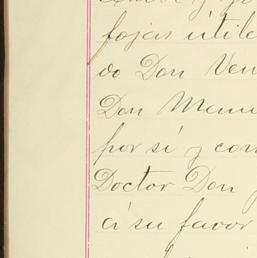 fojas útile
do Don Ven
Don Manu
por sí y con
Doctor Don
á su favor